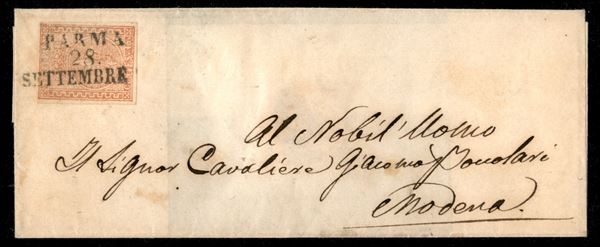 PARMA
28.
SETTEMBRE
Al Nobil' Uomo
Il Signor Cavaliere Giacomo
Modena.